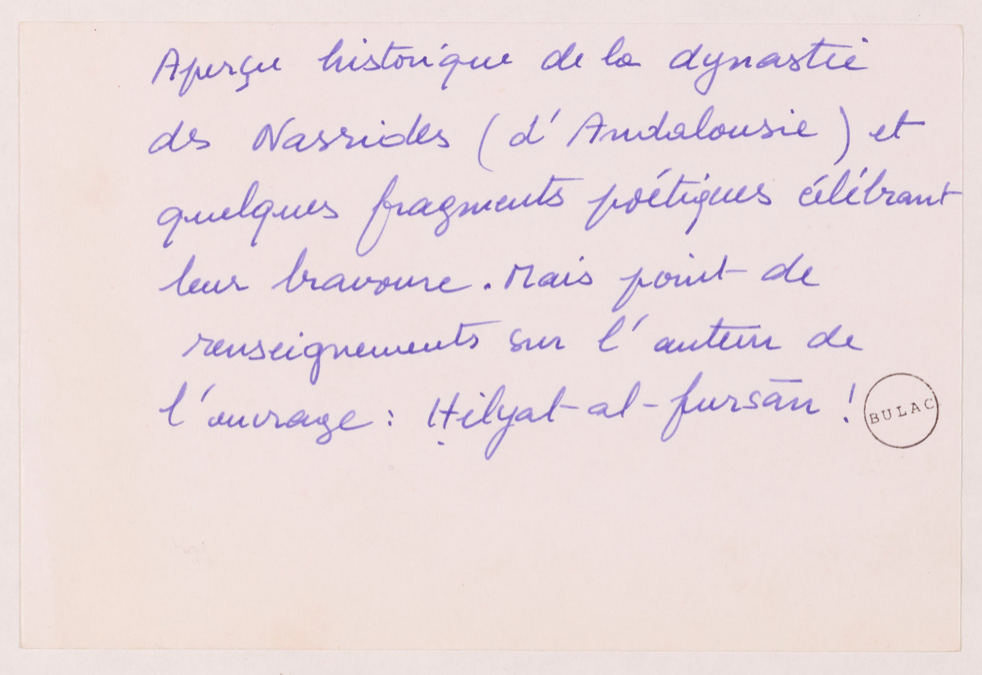 Aperçu historique de la dynastie
des Nassrides (d'Andalousie) et
quelques fragments poétiques célébrant
leur bravoure. Mais point de
renseignements sur l'auteur de
l'ouvrage : Ḥilyat-al-fursān !
BULAC